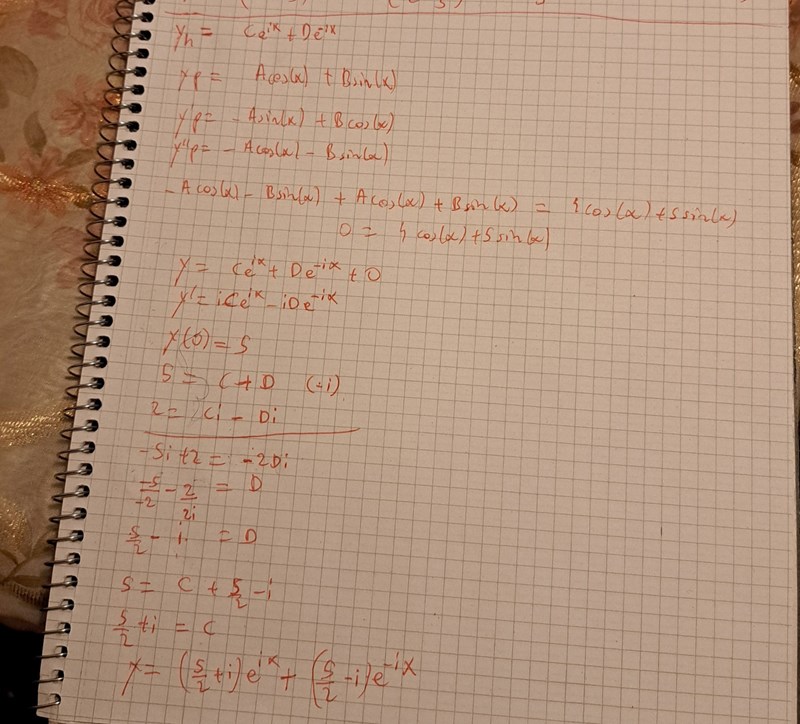 y_h = Ce^{ix} + De^{-ix}
y_p = A cos(x) + B sin(x)
y'_p = -A sin(x) + B cos(x)
y''_p = -A cos(x) - B sin(x)
-A cos(x) - B sin(x) + A cos(x) + B sin(x) = 4 cos(x) + 5 sin(x)
0 = 4 cos(x) + 5 sin(x)
y = Ce^{ix} + De^{-ix} + 0
y' = iCe^{ix} - iDe^{-ix}
y(0) = 5
5 = C + D (-i)
2 = Ci - Di
-5i + 2 = -2Di
\frac{-5}{-2} - \frac{2}{2i} = D
\frac{5}{2} - i = D
5 = C + \frac{5}{2} - i
\frac{5}{2} + i = C
y = (\frac{5}{2} + i)e^{ix} + (\frac{5}{2} - i)e^{-ix}